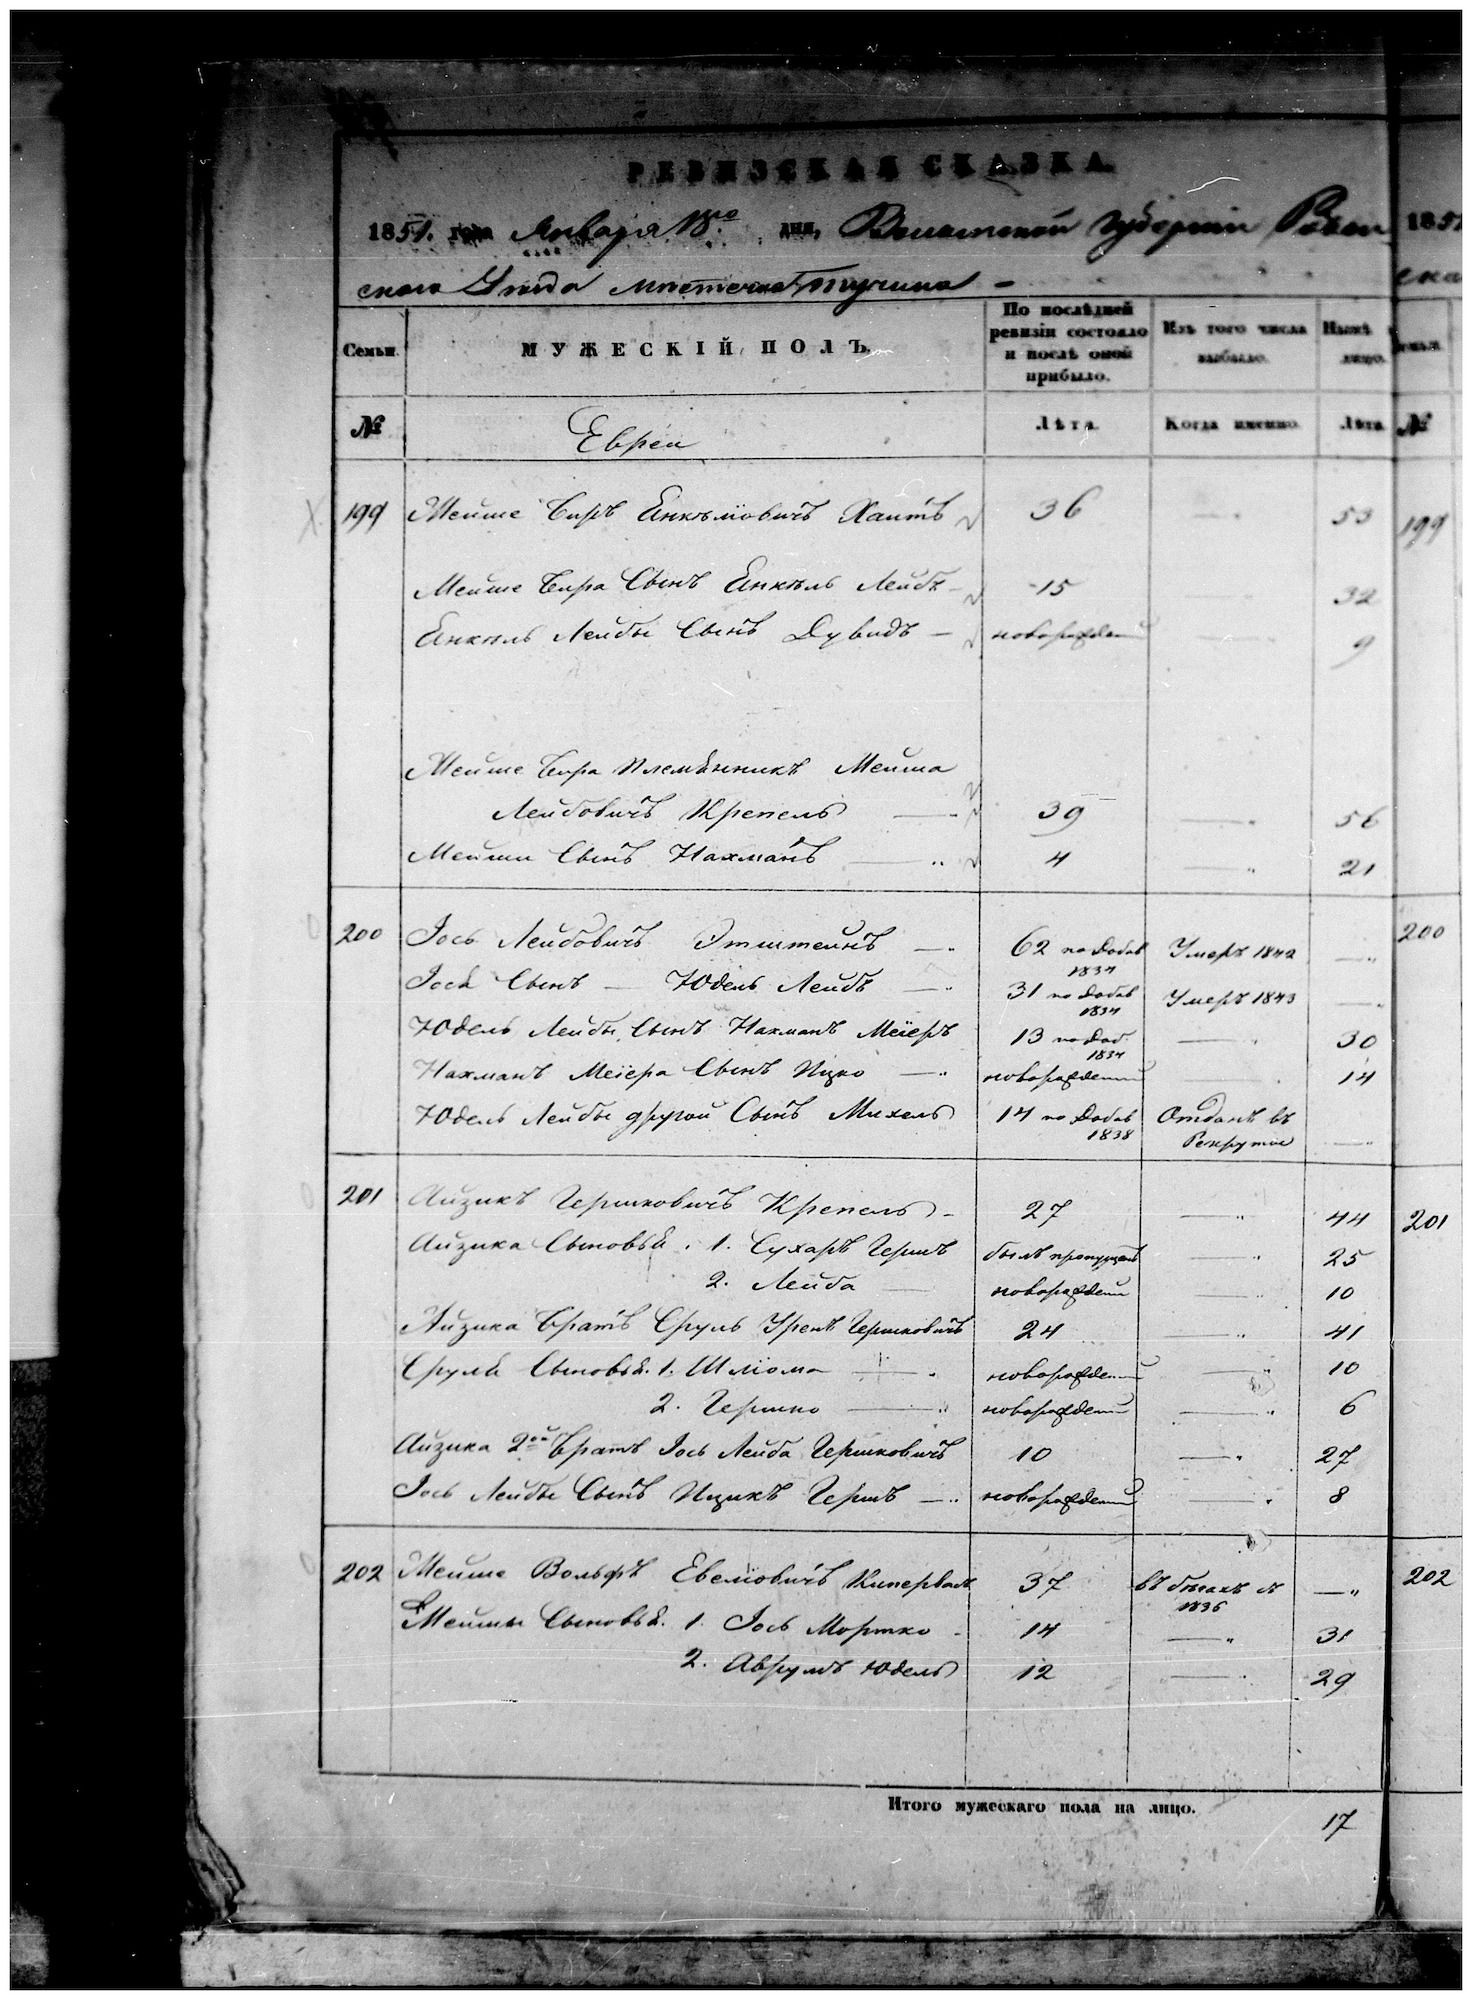 РЕВИЗСКАЯ СКАЗКА.
1851. года Января дня, Волынской Губернiи Ровен 1851
скаго Уезда местечка Тучина –
Семьи. МУЖЕСКIЙ ПОЛЪ. По послѣдней ревизiи состояло и послѣ оной прибыло. Изъ того числа выбыло. Нынѣ на лицо.
№ Евреи Лѣта. Когда именно. Лѣта. №
199 Мейше Беръ Енкелiовичъ 36 — 53 199
Мейше Бера Сынъ Енкель Лейба 15 32
Енкель Лейбы Сынъ Дувидъ — новорожден 9
Мейше Бера племѣнникъ Мейша
Лейбовичъ Крепель — 39 — 56
Мейши Сынъ Нахманъ — 4 — 21
200 Iось Лейбовичъ Этштейнъ — 62 по добав 1834 Умеръ 1842 — 200
Iося Сынъ — Юдель Лейбъ — 31 по добав 1834 Умеръ 1843 —
Юдель Лейбы Сынъ Нахманъ Меiеръ 13 по доб. 1834 — 30
Нахманъ Меiера Сынъ Ицко — новорожденный — 14
Юдель Лейбы другой Сынъ Михель 14 по добав 1838 Отданъ въ Рекруты —
201 Айзикъ Гершковичъ Крепель – 27 — 44 201
Айзика Сыновья. 1. Сухаръ Гершъ былъ пропущенъ — 25
2. Лейба — новорожден — 10
Айзика братъ Сруль Гершковичъ 24 — 41
Сруля Сыновья. 1. Шлiома — новорожденный — 10
2. Гершко — новорожденный — 6
Айзика 2ой братъ Iось Лейба Гершковичъ 10 — 27
Iось Лейбы Сынъ Ицикъ Гершъ — новорожденный — 8
202 Мейше Вольфъ Евелiовичъ 37 въ бѣгахъ съ 1836 — 202
Мейши Сыновья. 1. Iось Мортко – 14 — 31
2. Аврумъ Юдель 12 — 29
Итого мужескаго пола на лицо. 17